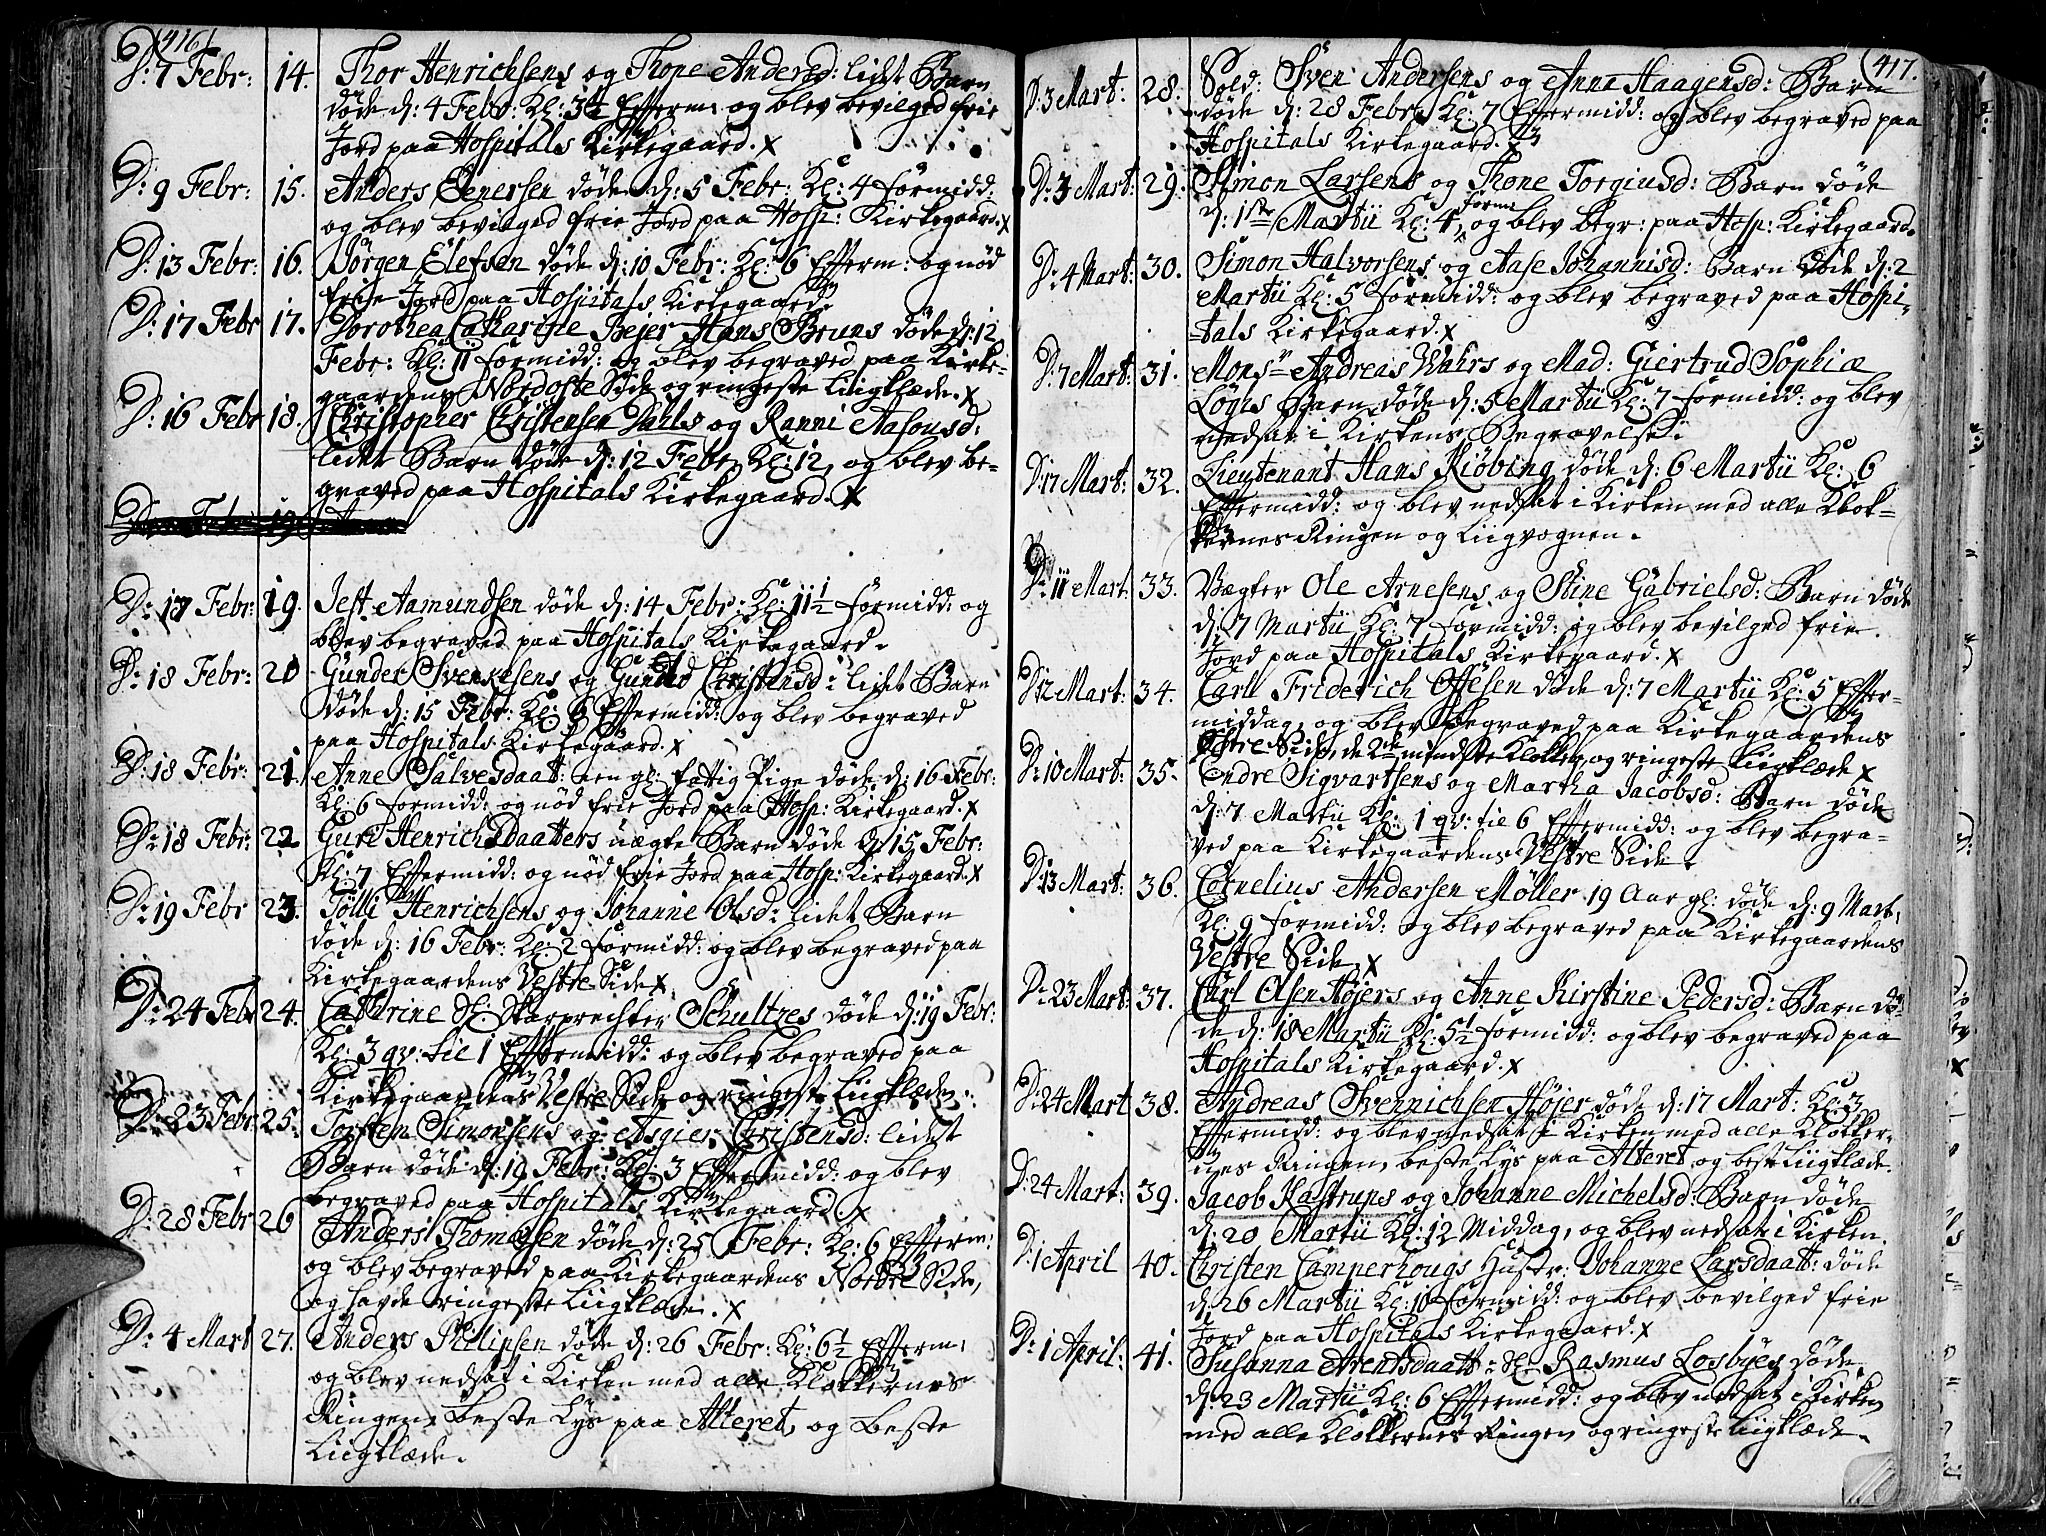 416
D: 7 Febr: 14. Thor Henrichsens og Thone Andersd: lidet Barn
døde d: 4 Febr: Kl: 3½ Efterm: og blev bevilged frie
Jord paa Hospitals Kirkegaard. X
D: 9 Febr: 15. Anders Eenersen døde d: 5 Febr: Kl: 4 formidd:
og blev bevilged frie Jord paa Hosp: Kirkegaard. X
D: 13 Febr: 16. Jørgen Elefsen døde d: 10 Febr: Kl: 6 Efterm: og nød
frie Jord paa Hospitals Kirkegaard.
D: 17 Febr 17. Dorothea Catharine Bejer Hans Bruns døde d: 12
Febr: Kl: 11 formidd: og blev begraved paa Kirke-
gaardens Nordoste Side og ringeste Liigklæde. X
D: 16 Febr 18. Christopher Christensen Dahls og Ranni Aasousd:
lidet Barn døde d: 12 Febr: Kl: 12, og blev be-
graved paa Hospitals Kirkegaard. X
D: 17 Febr: 19. Jest Aamundsen døde d: 14 Febr: Kl: 11½ formidd: og
blev begraved paa Hospitals Kirkegaard.
D: 18 Febr: 20 Gunder Svensesens og Gunild Christensd: lidet Barn
døde d: 15 Febr: Kl: 6 Eftermidd: og blev begraved
paa Hospitals Kirkegaard. X
D: 18 Febr: 21. Anne Salvesdaat: een gl: fattig Pige døde d: 16 Febr:
Kl: 6 formidd: og nød frie Jord paa Hosp: Kirkegaard. X
D: 18 Febr: 22 Guri Henrichsdaatters uægte Barn døde d: 15 Febr:
Kl: 7 Eftermidd: og nød frie Jord paa Hosp: Kirkegaard. X
D: 19 Febr 23. Tølli Henrichsens og Johanne Olsd: lidet Barn
døde d: 16 Febr: Kl: 2 formidd: og blev begraved paa
Kirkegaardens Vestre Side X
D: 24 Febr 24. Cathrine Sl: Skarprechter Schultzes døde d: 19 Febr:
Kl: 3 qv: til 1 Eftermidd: og blev begraved paa
Kirkegaardens Vestre Side og ringeste Liigklæde.
D: 23 Febr: 25. Torsten Simonsens og Asgier Christensd: lidet
Barn døde d: 19 Febr: Kl: 3 Eftermidd: og blev
begraved paa Hospitals Kirkegaard. X
D: 28 Febr 26 Anders Thomesen døde d: 25 Febr: Kl: 6 Efterm:
og blev begraved paa Kirkegaardens Nordre Side,
og havde ringeste Liigklæde. X
D: 4 Mart 27. Anders Philipsen døde d: 26 Febr: Kl: 6½ Efterm:
og blev nedsat i Kirken med alle Klokkernes
Ringen, beste Lys paa Alteret, og beste
Liigklæde.
417.
D: 3 Mart: 28. Sold: Sven Andersens og Anne Haagensd: Barn
døde d: 28 Febr: Kl: 7 Eftermidd: og blev begraved paa
Hospitals Kirkegaard. X
D: 3 Mart: 29. Simon Larsens og Thone Torgiusd: Barn døde
d: 1ste Martii Kl: 4 form: og blev begr: paa Hosp: Kirkegaard.
D: 4 Mart: 30. Simon Halvorsens og Aase Johannisd: Barn døde d: 2
Martii Kl: 5 formidd: og blev begraved paa Hospi-
tals Kirkegaard. X
D: 7 Mart: 31. Monsr Andreas Wahrs og Mad: Giertrud Sophiæ
Løghs Barn døde d: 5 Martii Kl: 7 formidd: og blev
nedsat i Kirkens Begravelse:
D: 17 Mart: 32. Lieutenant Hans Kiøbing døde d: 6 Martii Kl: 6
Eftermidd: og blev nedsat i Kirken med alle Klok-
kernes Ringen og Liigvognen.
D: 11 Mart. 33. Vægter Ole Arnesens og Stine Gabrielsd: Barn døde
d: 7 Martii Kl: 7 formidd: og blev bevilged frie
Jord paa Hospitals Kirkegaard. X
D: 12 Mart: 34. Carl Friderich Ottesen døde d: 7 Martii Kl: 5 Efter-
middag, og blev begraved paa Kirkegaardens
Østre Side, de 2de mindste Klokker, og ringeste Liigklæde X
D: 10 Mart: 35. Endre Sigvartsens og Martha Jacobsd: Barn døde
d: 7 Martii Kl: 1 qv: til 6 Eftermidd: og blev begra-
ved paa Kirkegaardens Vestre Side.
D: 13 Mart: 36. Cornelius Andersen Møller 19 Aar gl: døde d: 9 Mart:
Kl: 9 formidd: og blev begraved paa Kirkegaardens
Vestre Side. X
D: 23 Mart: 37. Carl Olsen Høyers og Anne Kirstine Pedersd: Barn dø-
de d: 18 Martii Kl: 5½ formidd: og blev begraved paa
Hospitals Kirkegaard. X
D: 24 Mart 38. Andreas Svennichsen Højer døde d: 17 Mart: Kl: 3
Eftermidd: og blev nedsat i Kirken med alle Klokker-
nes Ringen, beste Lys paa Alteret og beste Liigklæde.
D: 24 Mart: 39. Jacob Kastrups og Johanne Michelsd: Barn døde
d: 20 Martii Kl: 12 Middag, og blev nedsat i Kirken.
D: 1 April 40. Christen Camperhougs Hustr: Johanne Larsdaatt: døde
d: 26 Martii Kl: 10 formidd: og blev bevilged frie
Jord paa Hospitals Kirkegaard. X
D: 1 April: 41. Susanna Arentsdaatt: Sl: Rasmus Losbyes døde
d: 23 Martii Kl: 6 Eftermidd: og blev nedsat i Kirken
med alle Klokkernes Ringen og ringeste Liigklæde.